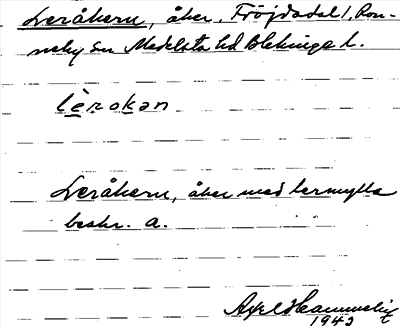 Leråkern, åker, Fröjdadal 1, Ron-
neby sn Medelsta hd Blekinge l.
lèrokan
Leråkern, åker med lermylla
beskr. a.
Axel Hammelin
1943